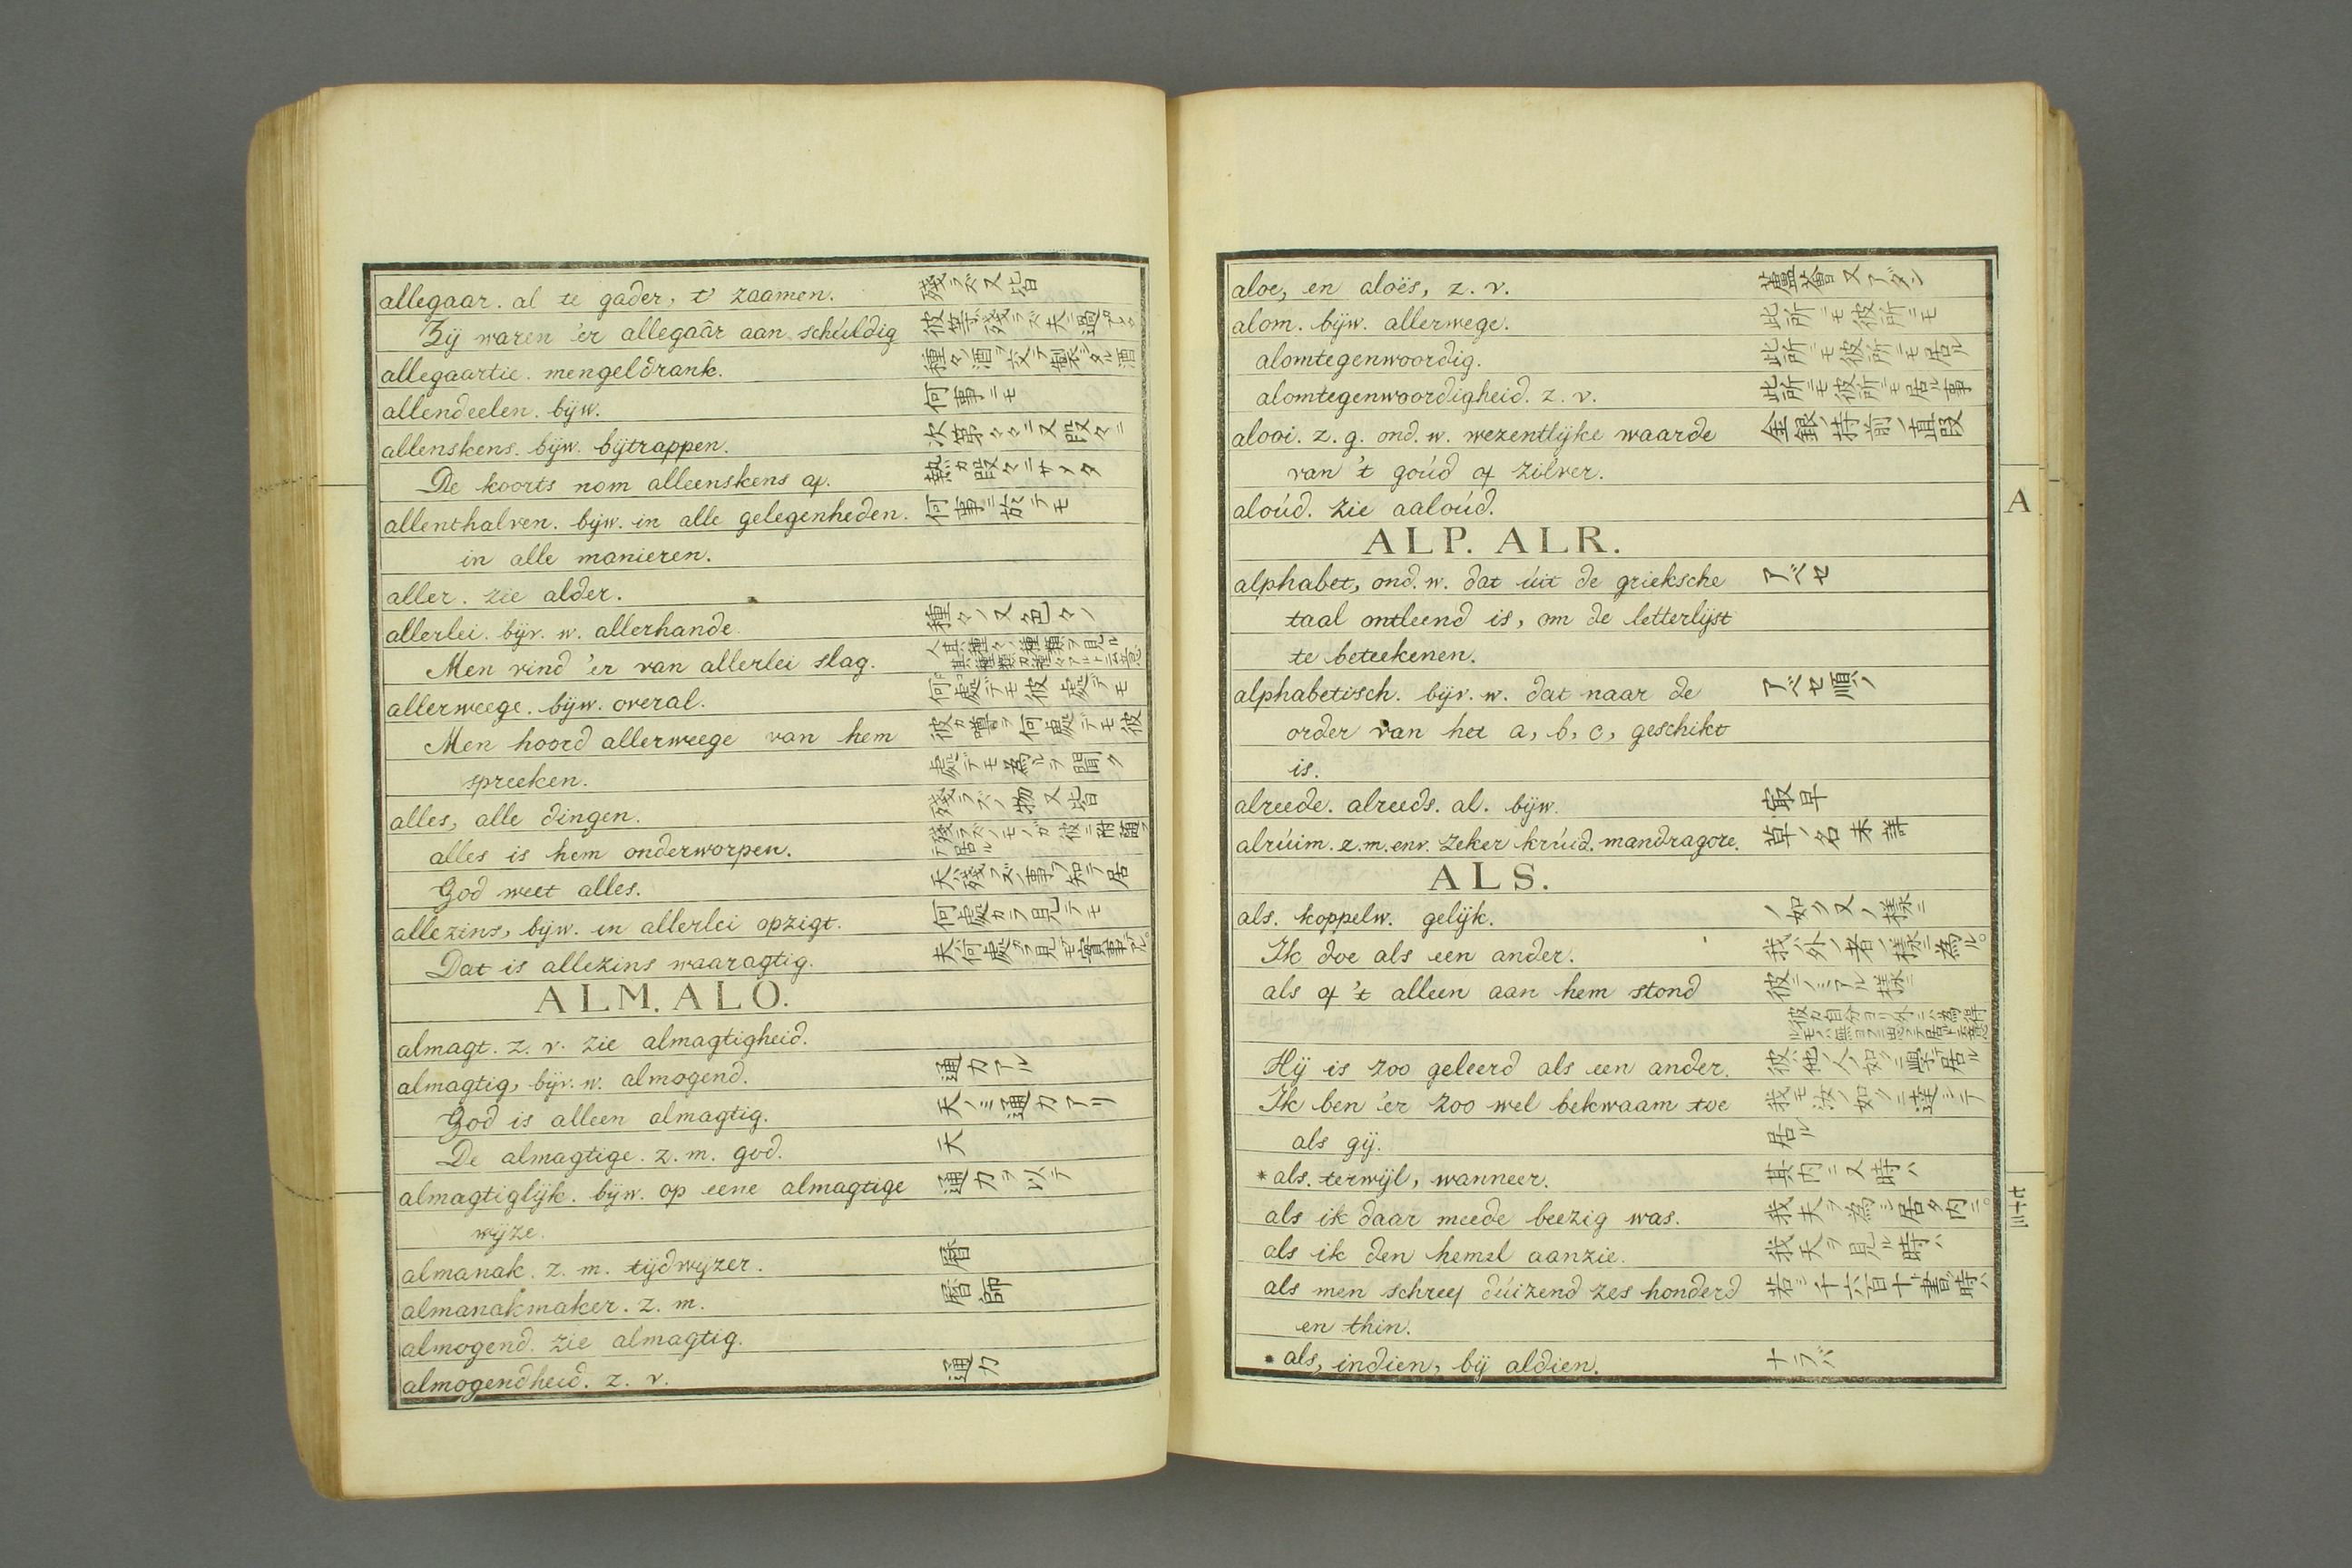 allegaar. al te gader, t' zaamen. 殘ラズ又皆
Zij waren 'er allegaâr aan schúldig
allegaartie. mengeldrank. 種々ノ酒ヲ交テ製シタル酒
allendeelen. bijw. 何事ニモ
allenskens. bijw. bijtrappen. 次第々々ニ又段々ニ
De koorts nom alleenskens af. 熱カ段々ニサメタ
allenthalven. bijw. in alle gelegenheden. 何事ニ於テモ
in alle manieren.
aller. zie alder.
allerlei. bijv. w. allerhande. 種々ノ又色々ノ
Men vind 'er van allerlei slag.
allerweege. bijw. overal. 何處デモ彼處デモ
Men hoord allerweege van hem 彼カ噂ヲ何處デモ彼
spreeken. 處デモ為ルヲ聞ク
alles, alle dingen. 殘ラズノ物又皆
alles is hem onderworpen.
God weet alles. 天ハ殘ラズノ事ヲ知テ居
allezins, bijw. in allerlei opzigt. 何處カラ見テモ
Dat is allezins waaragtig. 夫ハ何處カラ見テモ實事デアル。
ALM. ALO.
almagt. z. v. zie almagtigheid.
almagtig, bijv. w. almogend. 通力アル
God is alleen almagtig. 天ノミ通力アリ
De almagtige. z. m. god. 天
almagtiglijk. bijw. op eene almagtige 通力ヲ以テ
wijze.
almanak. z. m. tijdwijzer. 暦
almanakmaker. z. m. 暦師
almogend. zie almagtig.
almogendheid. z. v. 通力
aloe, en aloës, z. v. 蘆薈又アダン
alom. bijw. allerwege. 此所ニモ彼所ニモ
alomtegenwoordig. 此所ニモ彼所ニモ居ル
alomtegenwoordigheid. z. v. 此所ニモ彼所ニモ居ル事
alooi. z. g. ond. w. wezentlijke waarde 金銀ノ持前ノ直段
van 't goúd of zilver.
aloúd. zie aaloúd.
A
ALP. ALR.
alphabet, ond. w. dat úit de grieksche アベセ
taal ontleend is, om de letterlijst
te beteekenen.
alphabetisch. bijv. w. dat naar de アベセ順ノ
order van het a, b, c, geschikt
is.
alreede. alreeds. al. bijw. 最早
alrúim. z. m. env. zeker krúid. mandragore. 草ノ名未詳
ALS.
als. koppelw. gelijk. ノ如ク又ノ様ニ
Ik doe als een ander. 我ハ外ノ者ノ様ニ為ル。
als of 't alleen aan hem stond 彼ニノミアル様ニ
Hij is zoo geleerd als een ander. 彼ハ他ノ人ノ如クニ學デ居ル
Ik ben 'er zoo wel bekwaam toe 我モ汝ノ如クニ達シテ
als gij. 居ル
* als. terwijl, wanneer. 其内ニ又時ハ
als ik daar meede beezig was. 我夫ヲ為シ居タ内ニ。
als ik den hemel aanzie. 我天ヲ見ル時ハ
als men schreef dúizend zes honderd 若シ千六百十ト書シ時ハ
en thin.
* als, indien, bij aldien. ナラバ